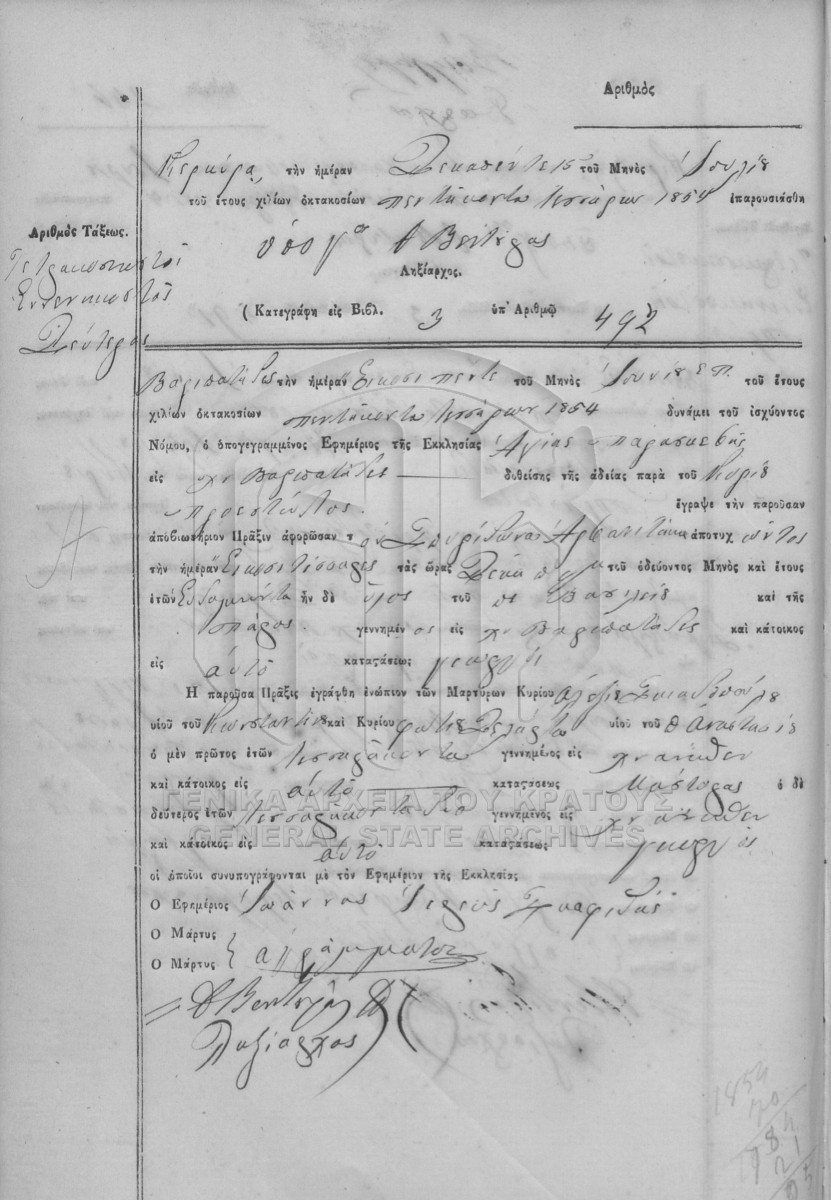 Αριθμὸς
Κερκύρα, τὴν ἡμέραν Δεκαπέντε 15 τοῦ Μηνὸς Ἰουλίȣ
τοῦ ἔτους χιλίων ὀκτακοσίων πεντήκοντα τεσσάρων 1854 ἐπαρουσιάσθη
Αριθμὸς Τάξεως.
Τετρακοσιοστὸς
Ἐννενηκοστὸς
Δεύτερος
Ληξίαρχος.
(Κατεγράφη εἰς Βιβλ. 3 ὑπ' Αριθμῷ 492
Βαριπατάδες τὴν ἡμέραν Εἴκοσι πέντε τοῦ Μηνὸς Ἰουνίȣ τοῦ ἔτους
χιλίων ὀκτακοσίων πεντήκοντα τεσσάρων 1854 δυνάμει τοῦ ἰσχύοντος
Νόμου, ὁ ὑπογεγραμμένος Ἐφημέριος τῆς Ἐκκλησίας Ἁγίας Παρασκευῆς
εἰς χν Βαριπατάδες δοθείσης τῆς ἀδείας παρὰ τοῦ Κυρίȣ
Προεστῶτος. ἔγραψε τὴν παροῦσαν
ἀποβιωτήριον Πρᾶξιν ἀφορῶσαν τὸν Σπυρίδωνα Ἀρβανιτάκη ἀποτυχόντος
τὴν ἡμέραν Εἴκοσι τέσσαρες τὰς ὥρας Δέκα π μ τοῦ ὁδεύοντος Μηνὸς καὶ ἔτους
ἐτῶν Ἑβδομήντα ἦν δὲ υἱὸς τοῦ π Βασιλείȣ καὶ τῆς
γεννημένος εἰς χν Βαριπατάδες καὶ κάτοικος
εἰς αὐτὸ καταςάσεως γεωργὸς
Ἡ παροῦσα Πρᾶξις ἐγράφθη ἐνώπιον τῶν Μαρτύρων Κυρίου Ἀλεξίȣ
υἱοῦ τοῦ Κωνσταντίνȣ καὶ Κυρίου Φωτίȣ υἱοῦ τοῦ π Ἀναστασίȣ
ὁ μὲν πρῶτος ἐτῶν τεσσαράκοντα γεννημένος εἰς χν ἄνωθεν
καὶ κάτοικος εἰς αὐτὸ καταςάσεως Μάστορας ὁ δὲ
δεύτερος ἐτῶν γεννημένος εἰς χν ἄνωθεν
καὶ κάτοικος εἰς αὐτὸ καταςάσεως γεωργὸς
οἱ ὁποῖοι συνυπογράφονται μὲ τὸν Ἐφημέριον τῆς Ἐκκλησίας
Ὁ Ἐφημέριος Ἰωάννης Ἱερεὺς
Ὁ Μάρτυς
Ὁ Μάρτυς } ἀγράμματοι
Ληξίαρχος
ΓΕΝΙΚΑ ΑΡΧΕΙΑ ΤΟΥ ΚΡΑΤΟΥΣ
GENERAL STATE ARCHIVES
1854
70